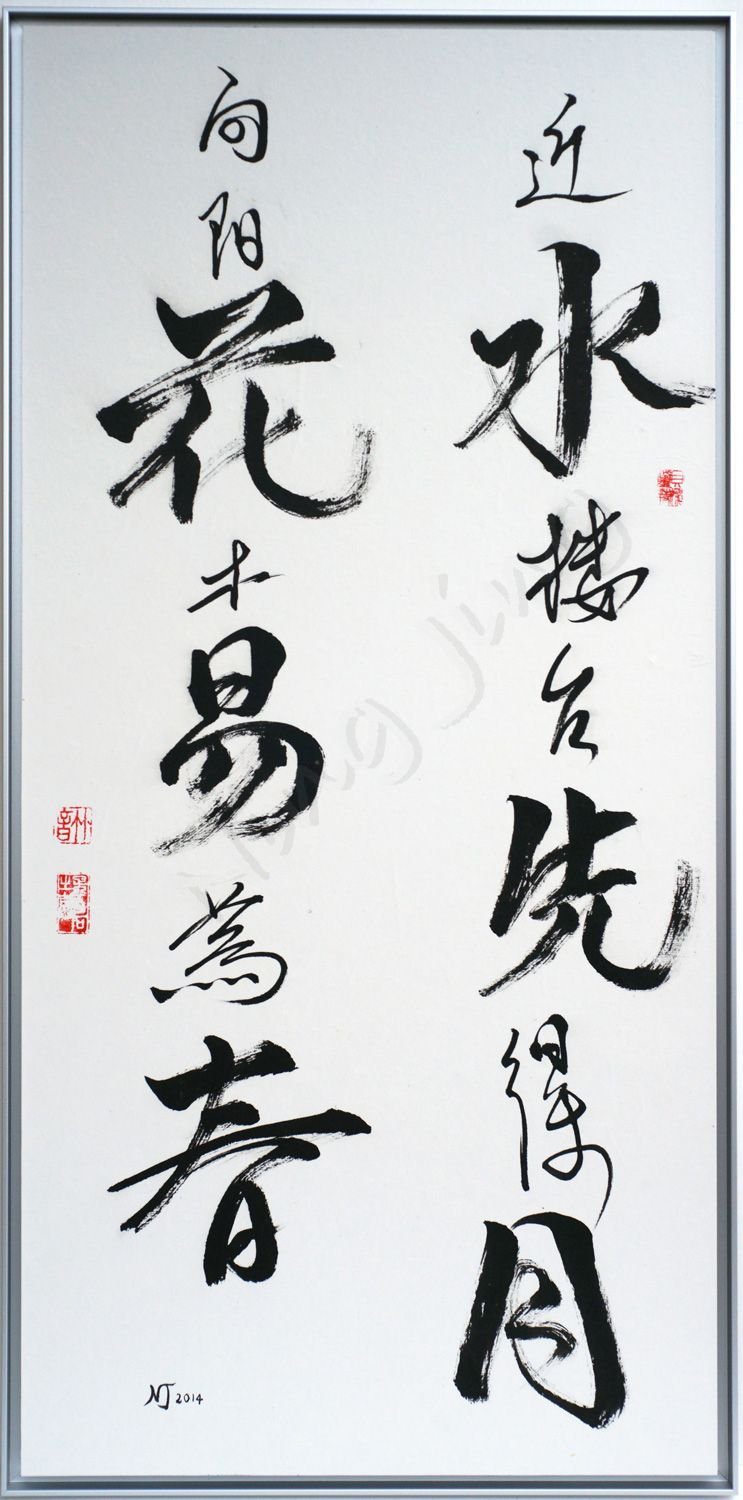 近水楼台先得月
向阳花木易為春
NJ 2014